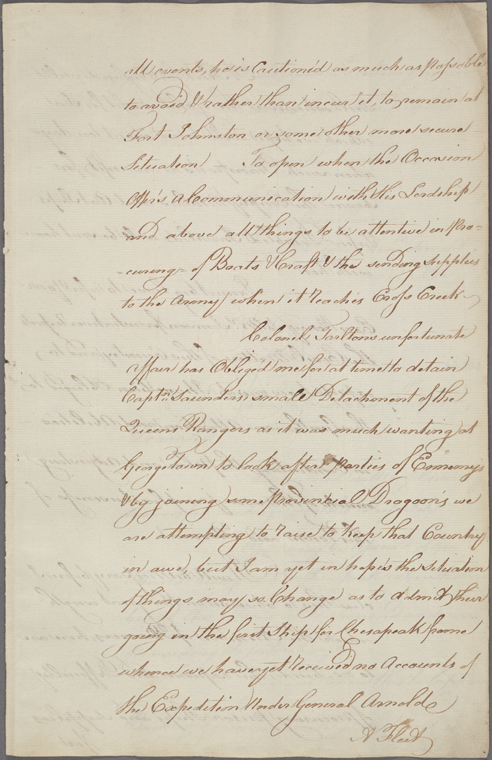 all events, he is Cautiond as much as possable
to avoid & rather than incur it, to remain at
Fort Johnston or some other more secure
Situation To open when the Occasion
Offers a Communication with His Lordship
and above all things to be attentive in Pro-
curing of Boats & Craft & the sending Supplies
to the Army when it reaches Cross Creek
Colonel Tarltons unfortunate
Affair has Obleged me for a time to detain
Captn. Saunders small Detachment of the
Queens Rangers as it was much wanting at
George Town to look after Parties of Ennemys
& by joining some Provintial Dragoons we
are attempting to raise to keep that Country
in awe, but I am yet in hopes the Situation
of things may so Change as to admit their
going in the first Ships for Chesapeak from
whence we have yet received no Accounts of
the Expedition Under General Arnold
A Fleet